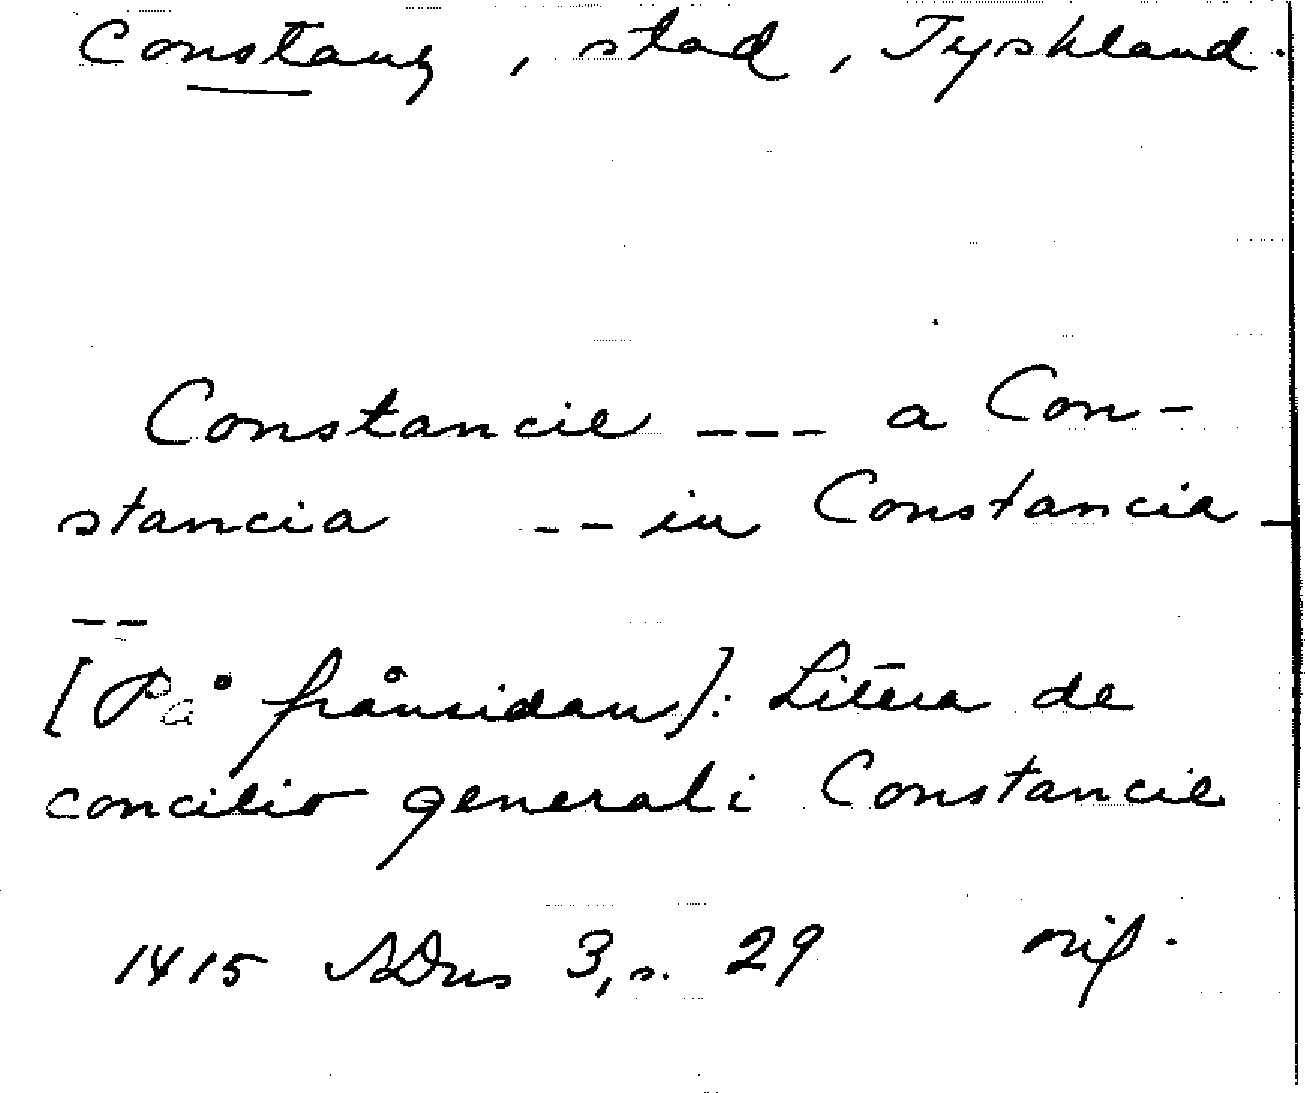 Constanz, stad, Tyskland.
Constancie --- a Con-
stancia -- in Constancia -
--
[På frånsidan]: Litera de
concilio generali Constancie
1415 SDns 3, s. 29 orig.